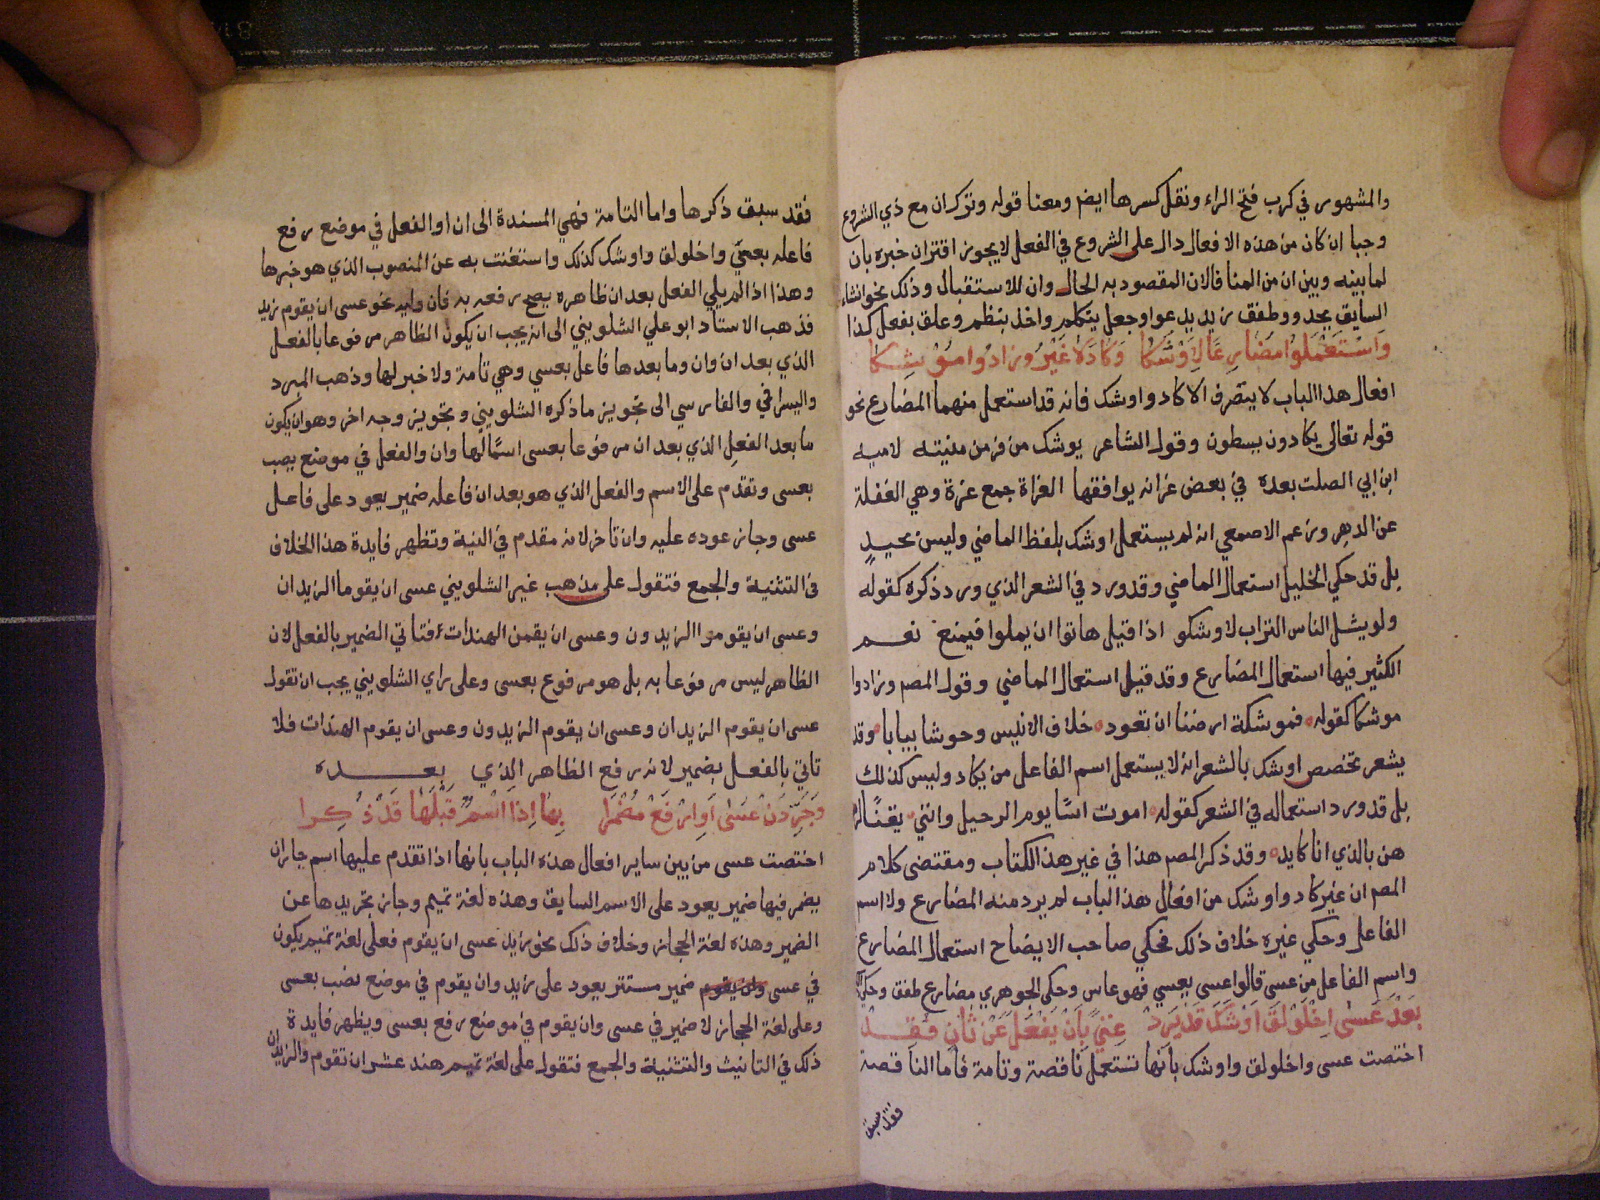 والمشهور في كرب فتح الراء ونقل كسرها ايضم ومعنا قوله وترك ان مع ذي الشروع
وجبا ان كان من هذه الافعال دال على الشروع في الفعل لا يجوز اقتران خبره بان
لما بينه وبين ان من المنافاة لان المقصود به الحال وان للاستقبال وذلك نحو انشاء
السايق يحدو وطفق زيد يدعوا وجعل يتكلم واخذ ينظم وعلق يفعل كذا
وَاسْتَعْمَلُوا مضَارِعًا لِاَوْشَكَا وَكَادَ لَا غَيْرُ وزادُوا مُوْشِكَا
افعال هذا الباب لا يتصرف الا كاد واوشك فانه قد استعمل منهما المضارع نحو
قوله تعالى يكادون يسطون وقول الشاعر يوشك من فر من منيته لاميه
ابن ابي الصلت بعده في بعض غراته يوافقها الغراة جمع غرة وهي الغفلة
عن الدهر وزعم الاصمعي انه لم يستعمل اوشك بلفظ الماضي وليس بجيد
بل قد حكي الخليل استعمال الماضي وقد ورد في الشعر الذي ورد ذكره كقوله
ولو يسئل الناس التراب لاوشكو اذا قيل هاتوا ان يملوا فيمنع نعم
الكثير فيها استعمال المضارع وقد قيل استعمال الماضي وقول المصم وزادوا
موشكا كقوله فموشكة ارضنا ان تعود خلاف الانيس وحوشا يبابا وقد
يشعر تخصص اوشك بالشعر انه لا يستعمل اسم الفاعل من يكاد وليس كذلك
بل قد ورد استعماله في الشعر كقوله اموت اسًا يوم الرحيل وانني يقنًا لر
هن بالذي انا كايد وقد ذكر المصم هذا في غير هذا الكتاب ومقتضى كلام
المصم ان غير كاد واوشك من افعال هذا الباب لم يرد منه المضارع ولا اسم
الفاعل وحكي غيره خلاف ذلك فحكي صاحب الايضاح استعمال المضارع
واسم الفاعل من عسى قالوا عسى يعسي فهو عاس وحكى الجوهري مضارع طفق وحكي
بَعْدَ عَسَىٰ اِخْلَوْلَقَ اَوْشَكَ قَدْ يَرِدْ غِنًي بِاَنْ يَفْعَلَ عَنْ ثَانٍ فُقِدْ
اختصت عسى واخلولق واوشك بانها تستعمل ناقصة وتامة فاما الناقصة
فقد سبق
فقد سبق ذكرها واما التامة فهي المسندة الى ان او الفعل في موضع رفع
فاعله بعسى واخلولق واوشك كذلك واستغنت به عن المنصوب الذي هو خبرها
وهذا اذا لم يلي الفعل بعد ان ظاهره يصح رفعه به فان وليه نحو عسى ان يقوم زيد
فذهب الاستاد ابو علي الشلوبيني الى انه يجب ان يكون الظاهر مرفوعا بالفعل
الذي بعد ان وان وما بعدها فاعل بعسي وهي تامة ولا خبر لها وذهب المبرد
واليسرافي والفارسي الى تجويز ما ذكره الشلوبيني وتجويز وجه اخر وهو ان يكون
ما بعد الفعل الذي بعد ان مرفوعا بعسى اسمًا لها وان والفعل في موضع نصب
بعسى وتقدم على الاسم والفعل الذي هو بعد ان فاعله ضمير يعود على فاعل
عسى وجاز عوده عليه وان تاخر لانه مقدم في النية وتظهر فايدة هذا الخلاف
في التثنية والجمع فتقول على مذهب غير الشلوبيني عسى ان يقوما الزيدان
وعسى ان يقوموا الزيدون وعسى ان يقمن الهندات فتاتي الضمير بالفعل لان
الظاهر ليس مرفوعا به بل هو مرفوع بعسى وعلى راي الشلوبيني يجب ان تقول
عسى ان يقوم الزيدان وعسى ان يقوم الزيدون وعسى ان يقوم الهندات فلا
تاتي بالفعل بضمير لانه رفع الظاهر الذي بعده
وَجَرِّدَنْ عَسَىٰ اَوِ ارْفَعْ مُضْمَرَا بِهَا اِذَا اسْمٌ قَبْلَهَا قَدْ ذُكِرا
اختصت عسى من بين ساير افعال هذه الباب بانها اذا تقدم عليها اسم جاز ان
يضمر فيها ضمير يعود على الاسم السايق وهذه لغة تميم وجاز تجريدها عن
الضمير وهذه لغة الحجاز وخلاف ذلك نحو زيد عسى ان يقوم فعلى لغة تميم يكون
في عسى ضمير مستتر يعود على زيد وان يقوم في موضع نصب بعسى
وعلى لغة الحجاز لا ضمير في عسى وان يقوم في موضع رفع بعسى ويظهر فايدة
ذلك في التانيث والتثنية والجمع فتقول على لغة تميم هند عست ان تقوم والزيدان